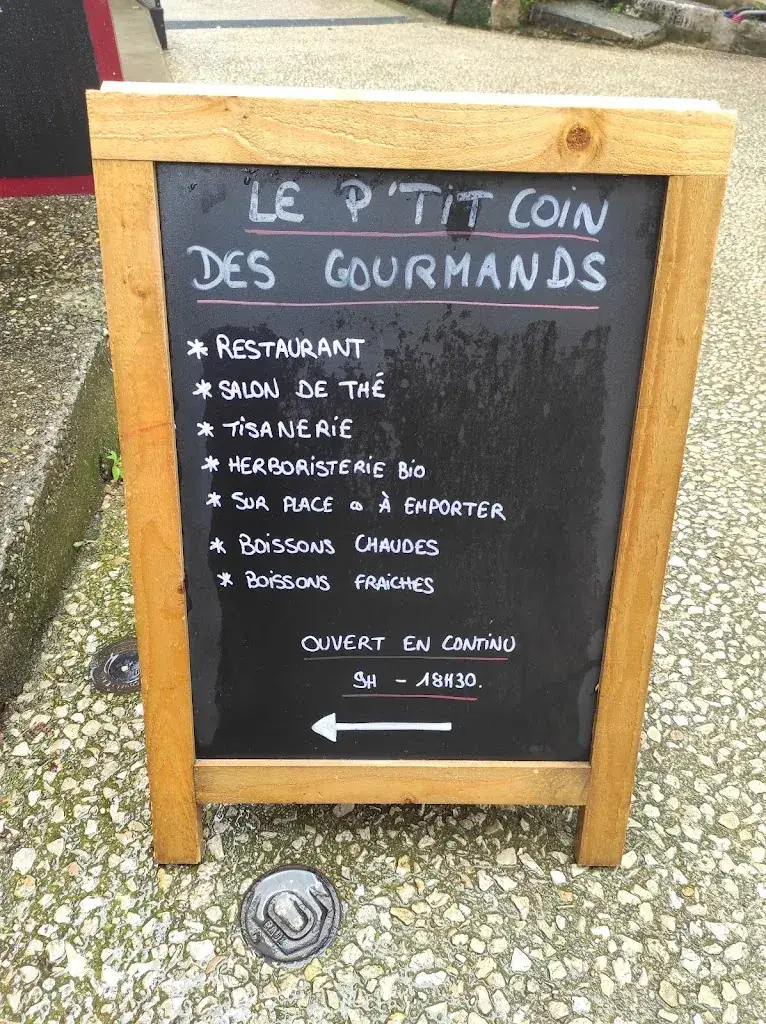 LE P'TIT COIN
DES GOURMANDS
* RESTAURANT
* SALON DE THÉ
* TISANERIE
* HERBORISTERIE BIO
* SUR PLACE ou À EMPORTER
* BOISSONS CHAUDES
* BOISSONS FRAICHES
OUVERT EN CONTINU
9H - 18H30.